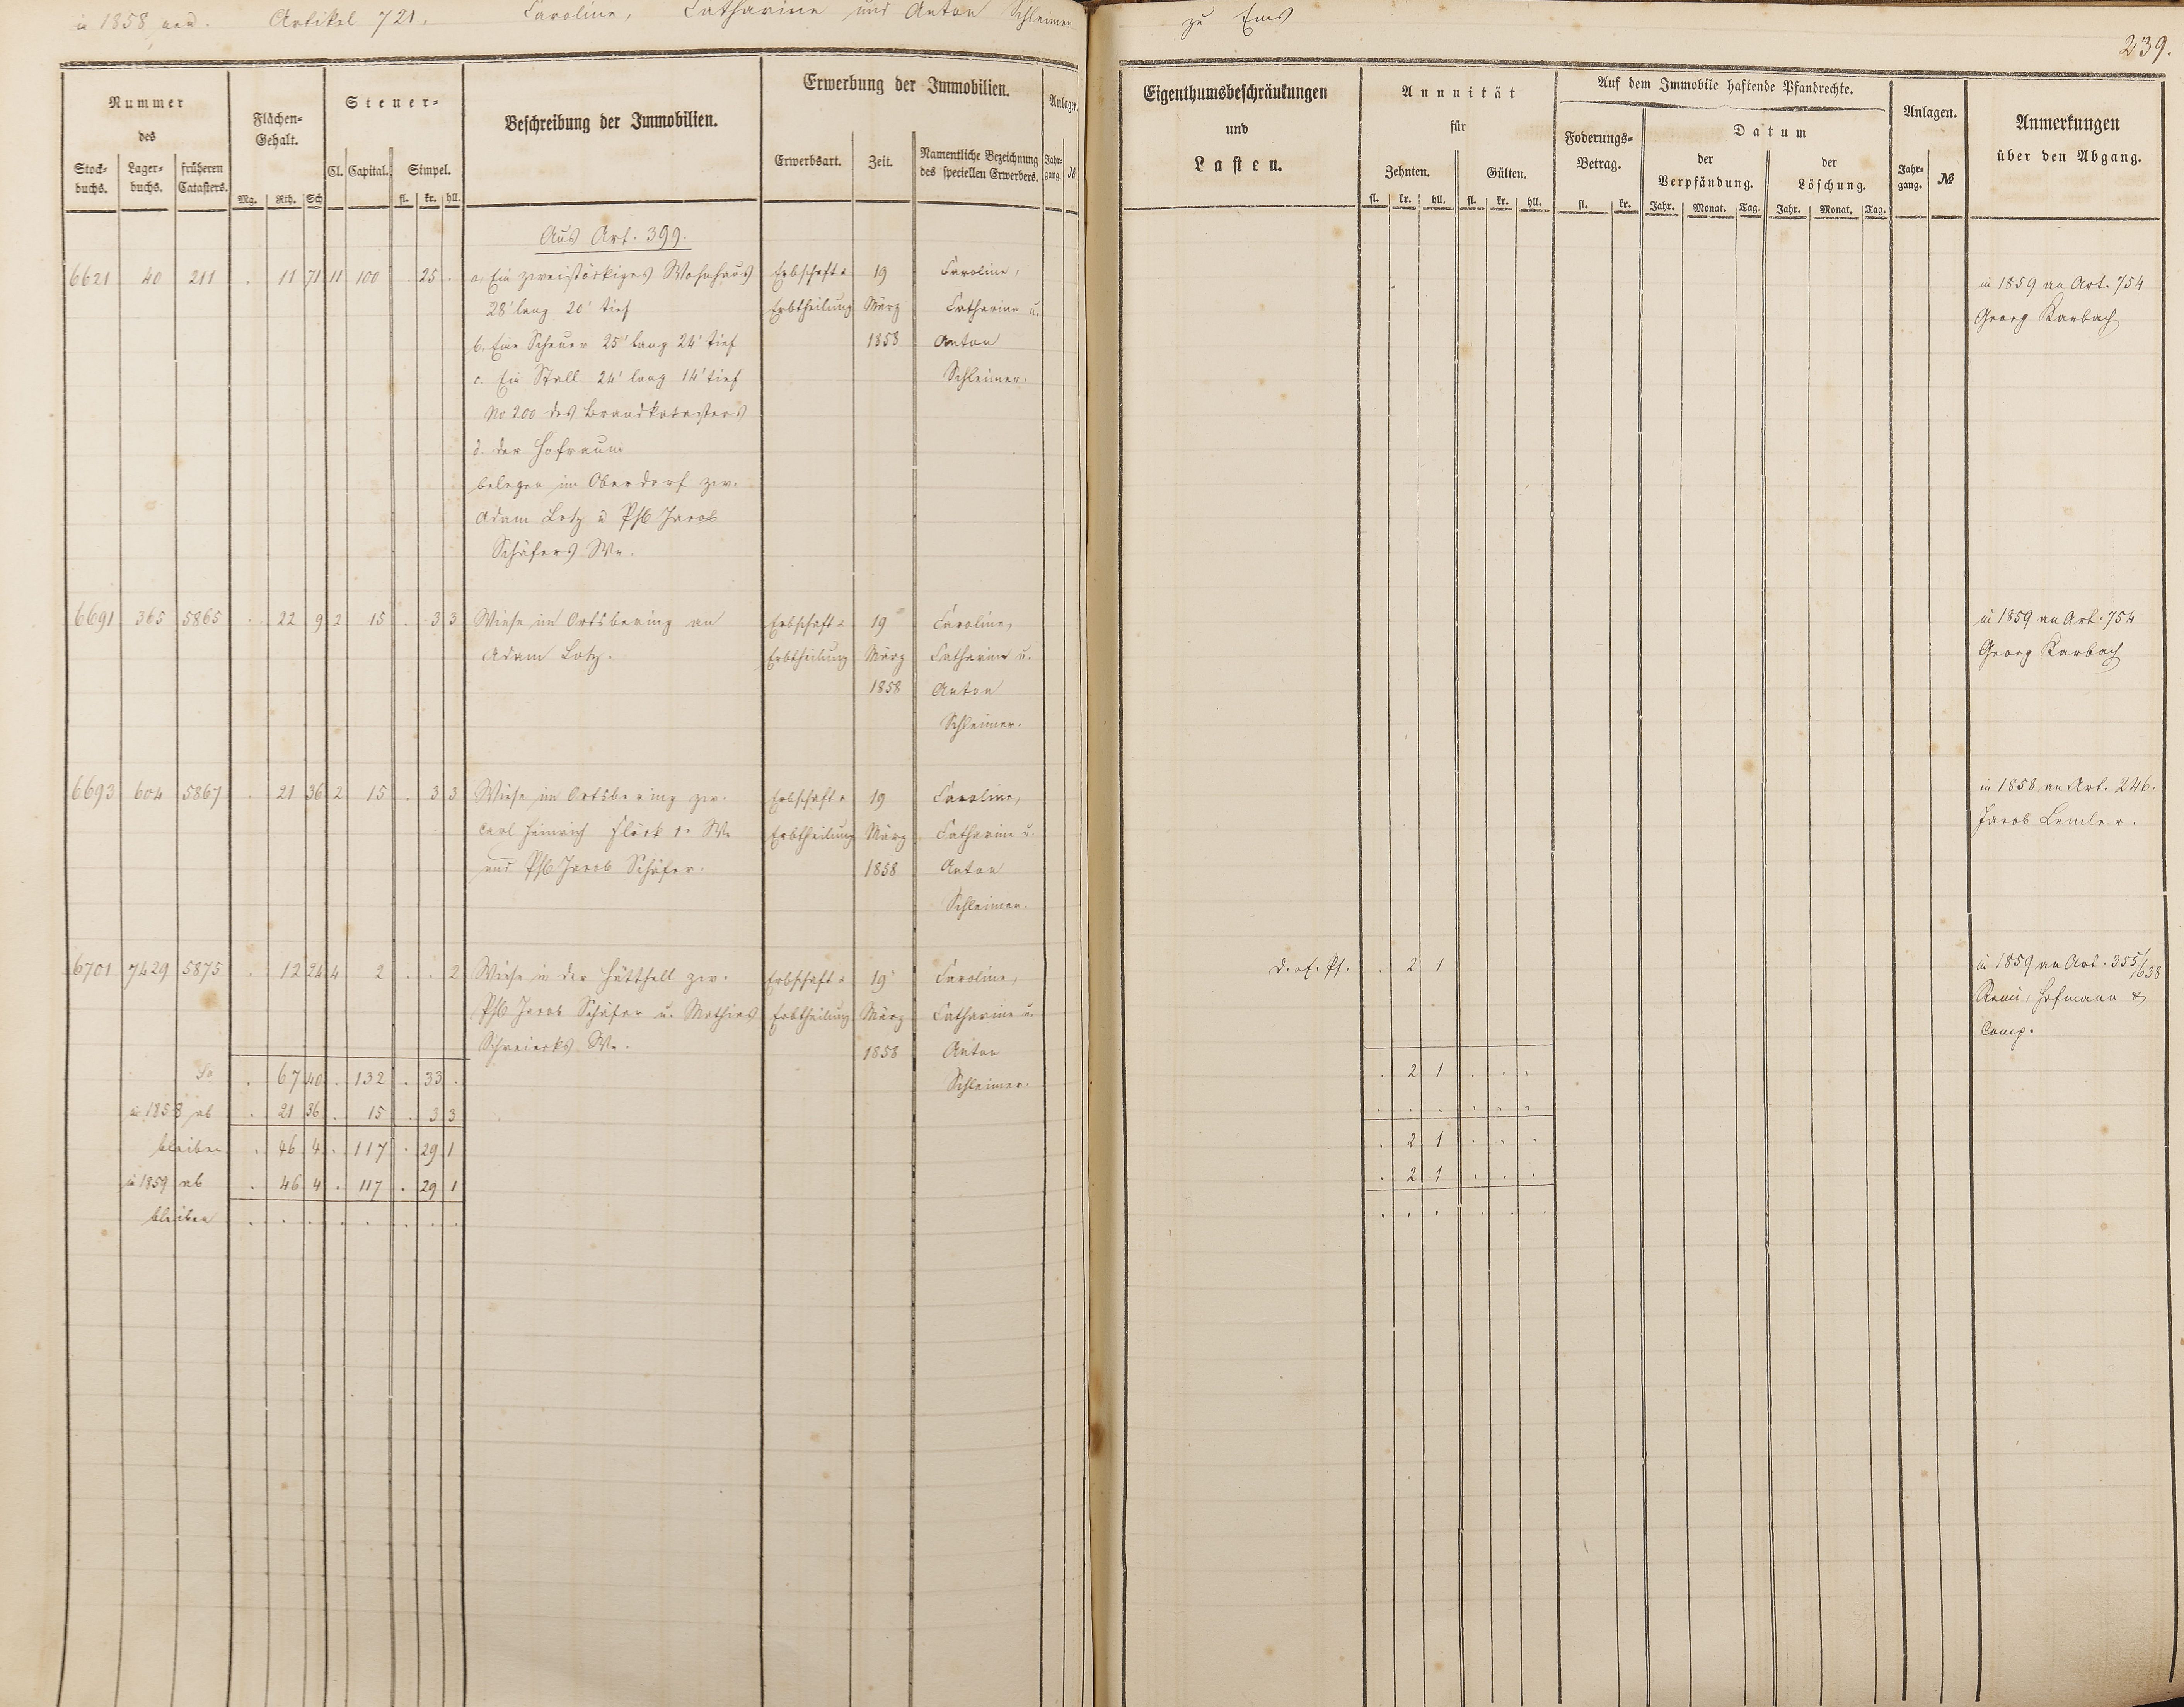 in 1858 Artikel 721. Caroline, Catharine und Anton Schleimer zu Ems
239.
Nummer des
Stock-buchs. Lager-buchs. früheren Catasters.
Flächen-Gehalt.
Mg. Rth. Sch
Steuer-
Cl. Capital. Simpel.
fl. kr. hll.
Beschreibung der Immobilien.
Erwerbung der Immobilien.
Erwerbsart. Zeit. Namentliche Bezeichnung des speciellen Erwerbers.
Anlagen
Jahr-gang. №
Eigenthumsbeschränkungen
und
Lasten.
Annuität
für
Zehnten. Gülten.
fl. kr. hll. fl. kr. hll.
Auf dem Immobile haftende Pfandrechte.
Foderungs-Betrag.
fl. kr.
Datum
der Verpfändung. der Löschung.
Jahr. Monat. Tag. Jahr. Monat. Tag.
Anlagen.
Jahr-gang. №
Anmerkungen
über den Abgang.
Aus Art. 399.
6621 40 211 . 11 71 11 100 . 25 . a. Ein zweistöckiges Wohnhaus Erbschaft u. 19 Caroline, in 1859 an Art. 754
28' lang 20' tief Erbtheilung März Catharine u. Georg Karbach
b. Eine Scheuer 25' lang 24' tief 1858 Anton
c. Ein Stall 24' lang 14' tief Schleimer.
No 200 des Brandkatasters
d. der Hofraum
belegen im Oberdorf zw.
Adam Lotz u Phil Jacob
Schäfers We.
6691 365 5865 . 22 9 2 15 . 3 3 Wiese im Ortsbering an Erbschaft u. 19 Caroline, in 1859 an Art. 754
Adam Lotz. Erbtheilung März Catharine u. Georg Karbach
1858 Anton
Schleimer.
6693 604 5867 . 21 36 2 15 . 3 3 Wiese im Ortsbering zw. Erbschaft u. 19 Caroline, in 1858 an Art. 246.
Carl Heinrich Flöck We Erbtheilung März Catharine u. Jacob Lemler.
und Phil Jacob Schäfer. 1858 Anton
Schleimer.
6701 7429 5875 . 12 24 4 2 . . 2 Wiese in der Hütthell zw. Erbschaft u. 19 Caroline, . 2 1 in 1859 an Art. 355/1638
Phil Jacob Schäfer u. Mathias Erbtheilung März Catharine u. Remi, Hofmann &
We. 1858 Anton Comp.
Sa . 67 40 . 132 . 33 . Schleimer. . 2 1 . . .
in 1858 ab . 21 36 . 15 . 3 3 . . . . . .
bleiben . 46 4 . 117 . 29 1 . 2 1 . . .
in 1859 ab . 46 4 . 117 . 29 1 . 2 1 . . .
bleiben . . . . . . . . . . . . . .